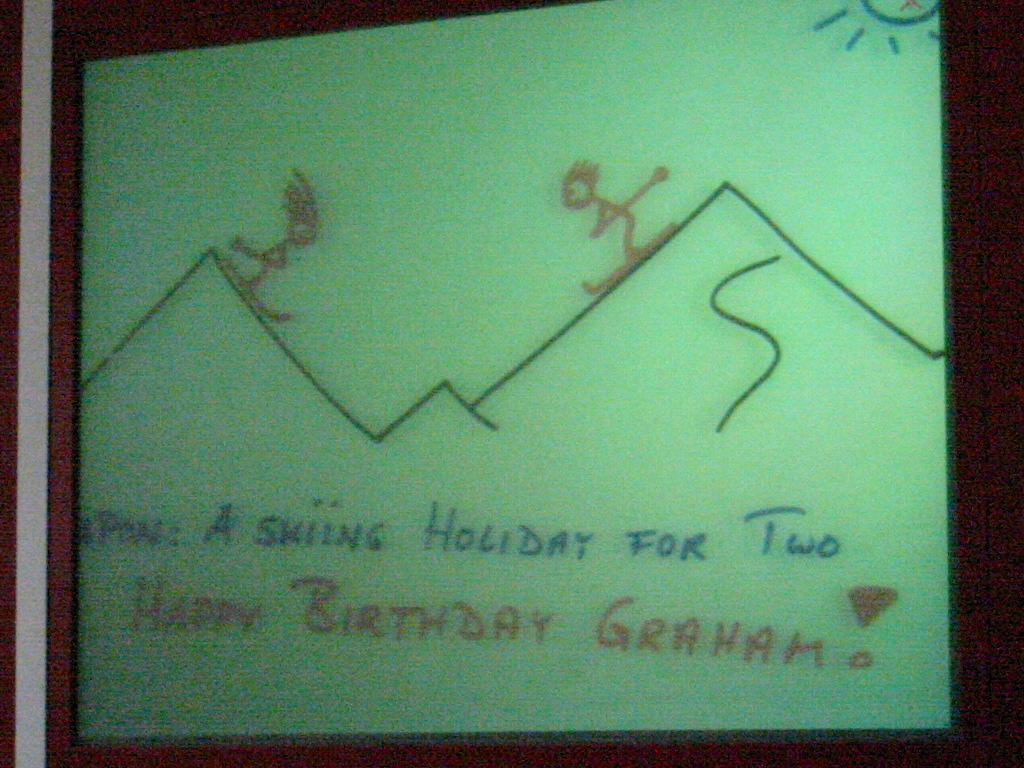 UPON: A SKIING HOLIDAY FOR TWO
HAPPY BIRTHDAY GRAHAM!